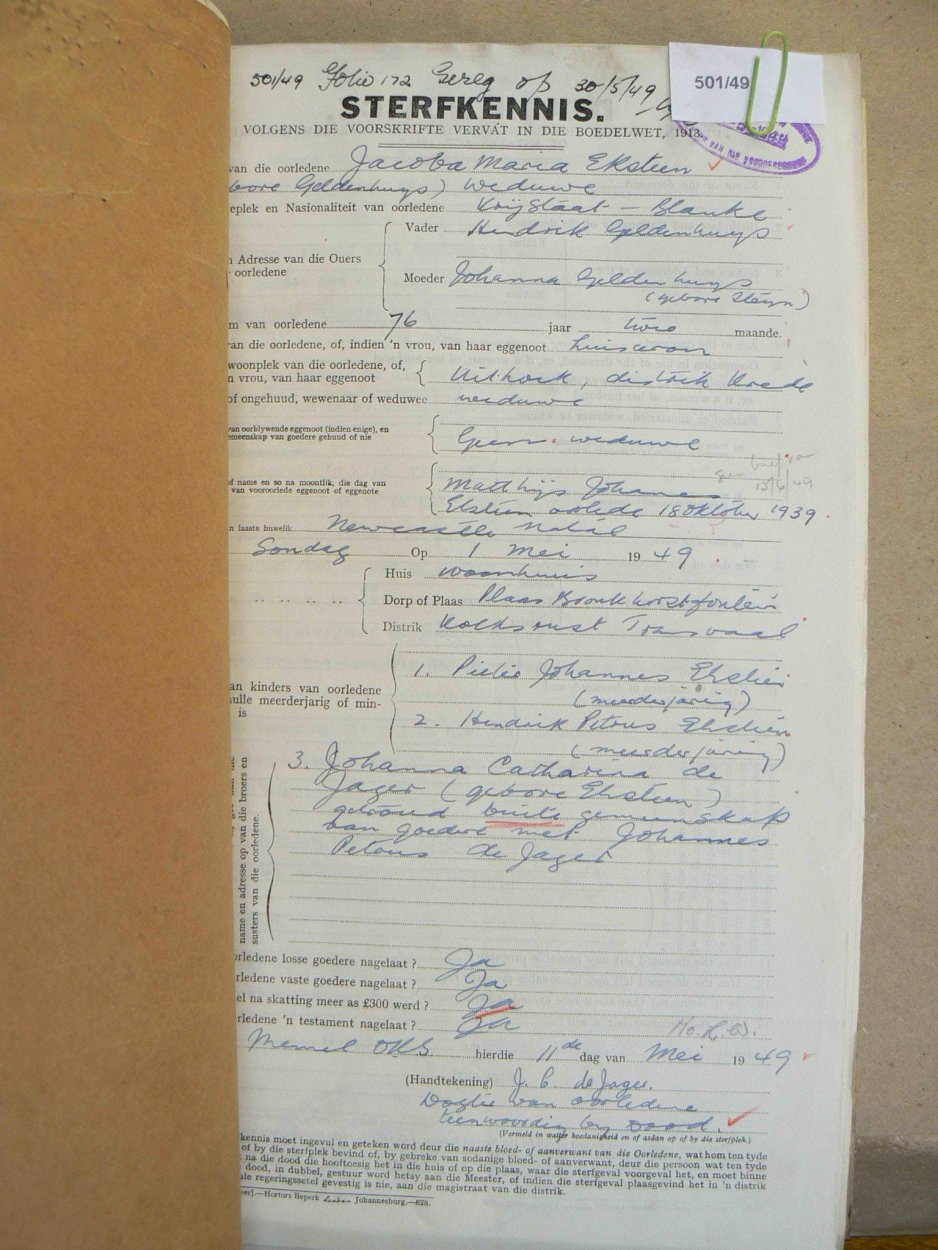 501/49 Folio 172 Gereg op 30/5/49
501/49
STERFKENNIS.
VOLGENS DIE VOORSKRIFTE VERVAT IN DIE BOEDELWET, 1913.
van die oorledene Jacoba Maria Eksteen
bore Geldenhuys) weduwe
eplek en Nasionaliteit van oorledene Vrijstaat - Blanke
Vader Hendrik Geldenhuys
Adresse van die Ouers
oorledene
Moeder Johanna Geldenhuys
(gebore Steyn)
m van oorledene 76 jaar twee maande.
van die oorledene, of, indien 'n vrou, van haar eggenoot huisvrou
woonplek van die oorledene, of,
n vrou, van haar eggenoot Uithoek, distrik Vrede
of ongehuud, wewenaar of weduwee weduwe
van oorblywende eggenoot (indien enige), en
emeenskap van goedere gehuud of nie Geen. weduwe
13/6/49
f name en so na moontlik, die dag van
van vooroorlede eggenoot of eggenote
Matthijs Johannes
Eksteen oorlede 18 Oktober 1939
n laaste huwelik Newcastle Natal
Sondag Op 1 Mei 1949
Huis woonhuis
Dorp of Plaas Plaas Bronkhorstfontein
Distrik Volksrust Transvaal
an kinders van oorledene
ulle meerderjarig of min-
is
1. Pieter Johannes Eksteen
(meerderjarig)
2. Hendrik Petrus Eksteen
(meerderjarig)
name en adresse op van die broers en
susters van die oorledene.
3. Johanna Catharina de
Jager (gebore Eksteen)
getroud buite gemeenskap
van goedere met Johannes
Petrus de Jager
orledene losse goedere nagelaat ? Ja
rledene vaste goedere nagelaat ? Ja
el na skatting meer as £300 werd ? Ja
rledene 'n testament nagelaat ? Ja
Memel OVS. hierdie 11de dag van Mei 1949
(Handtekening) J. C. de Jager.
Dogter van oorledene
teenwoordig by dood.
(Vermeld in watter hoedanigheid en of aldan op of by die sterfplek.)
kennis moet ingevul en geteken word deur die naaste bloed- of aanverwant van die Oorledene, wat hom ten tyde
of by die sterfplek bevind of, by gebreke van sodanige bloed- of aanverwant, deur die persoon wat ten tyde
na die dood die hooftoesig het in die huis of op die plaas, waar die sterfgeval voorgeval het, en moet binne
dood, in dubbel, gestuur word hetsy aan die Meester, of indien die sterfgeval plaasgevind het in 'n distrik
ale regeringssetel gevestig is nie, aan die magistraat van die distrik.
Hortors Beperk Johannesburg.—628.